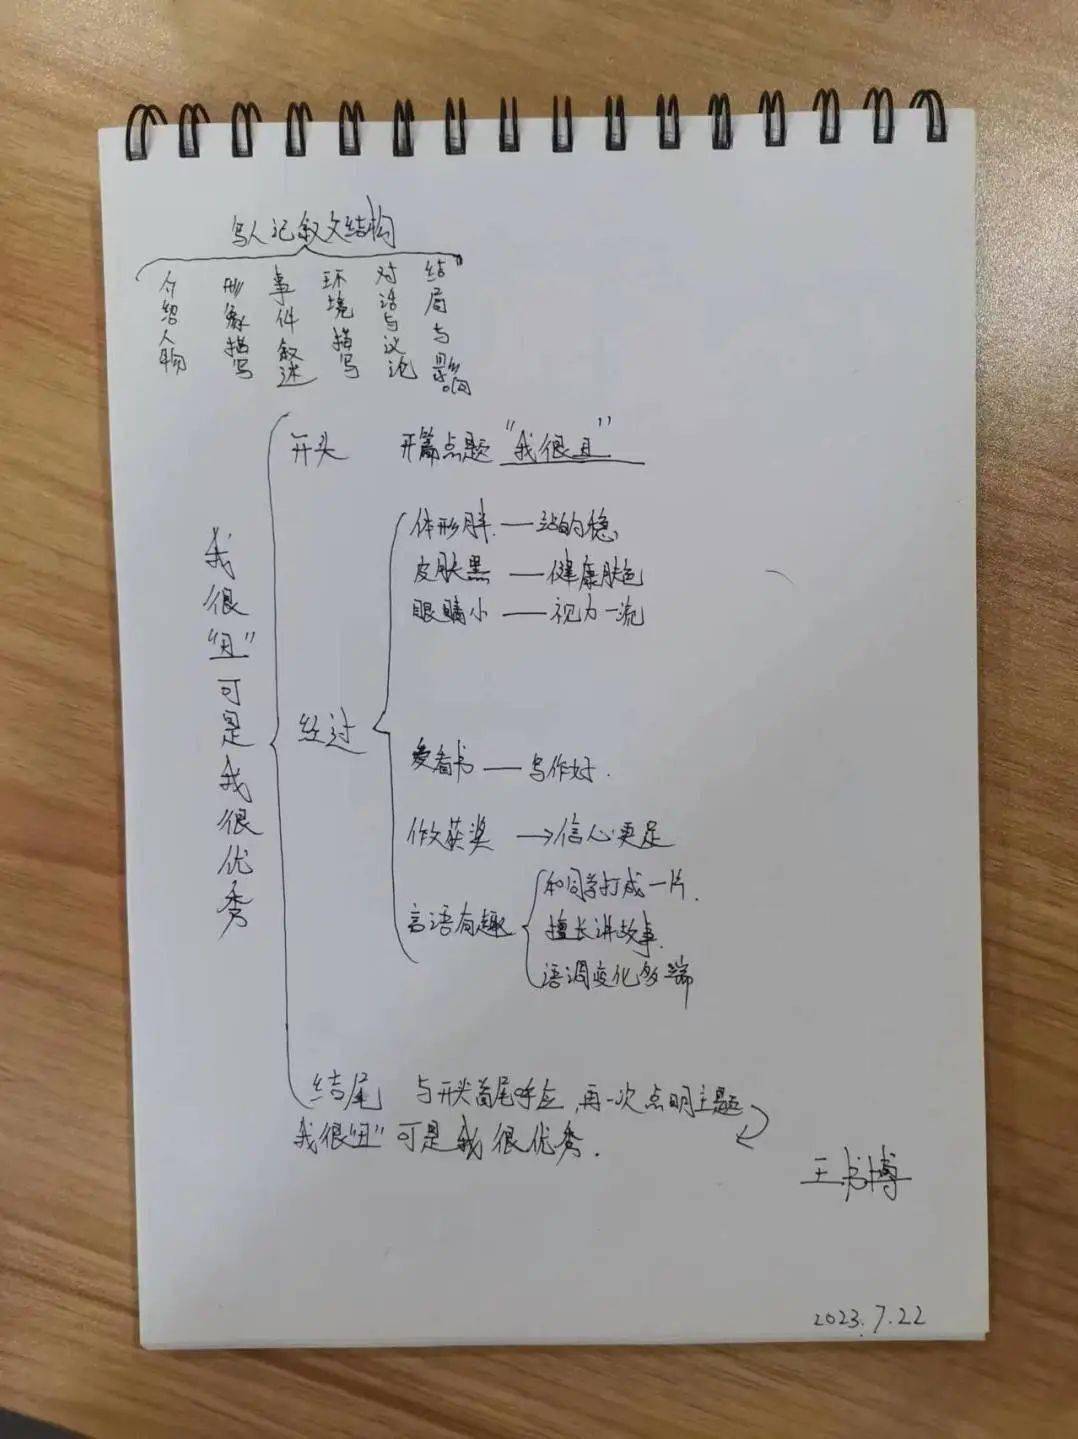 写人记叙文结构
介绍人物
形象描写
事件叙述
环境描写
对话与议论
结局与影响
我很"丑"可是我很优秀
开头 开篇点题"我很丑"
经过
体形胖.—站的稳
皮肤黑—健康肤色
眼睛小—视力一流
爱看书—写作好.
作文获奖→信心更足
言语有趣
和同学打成一片.
擅长讲故事.
语调变化多端
结尾 与开头首尾呼应,再一次点明主题
我很"丑"可是我很优秀.
王书博
2023.7.22